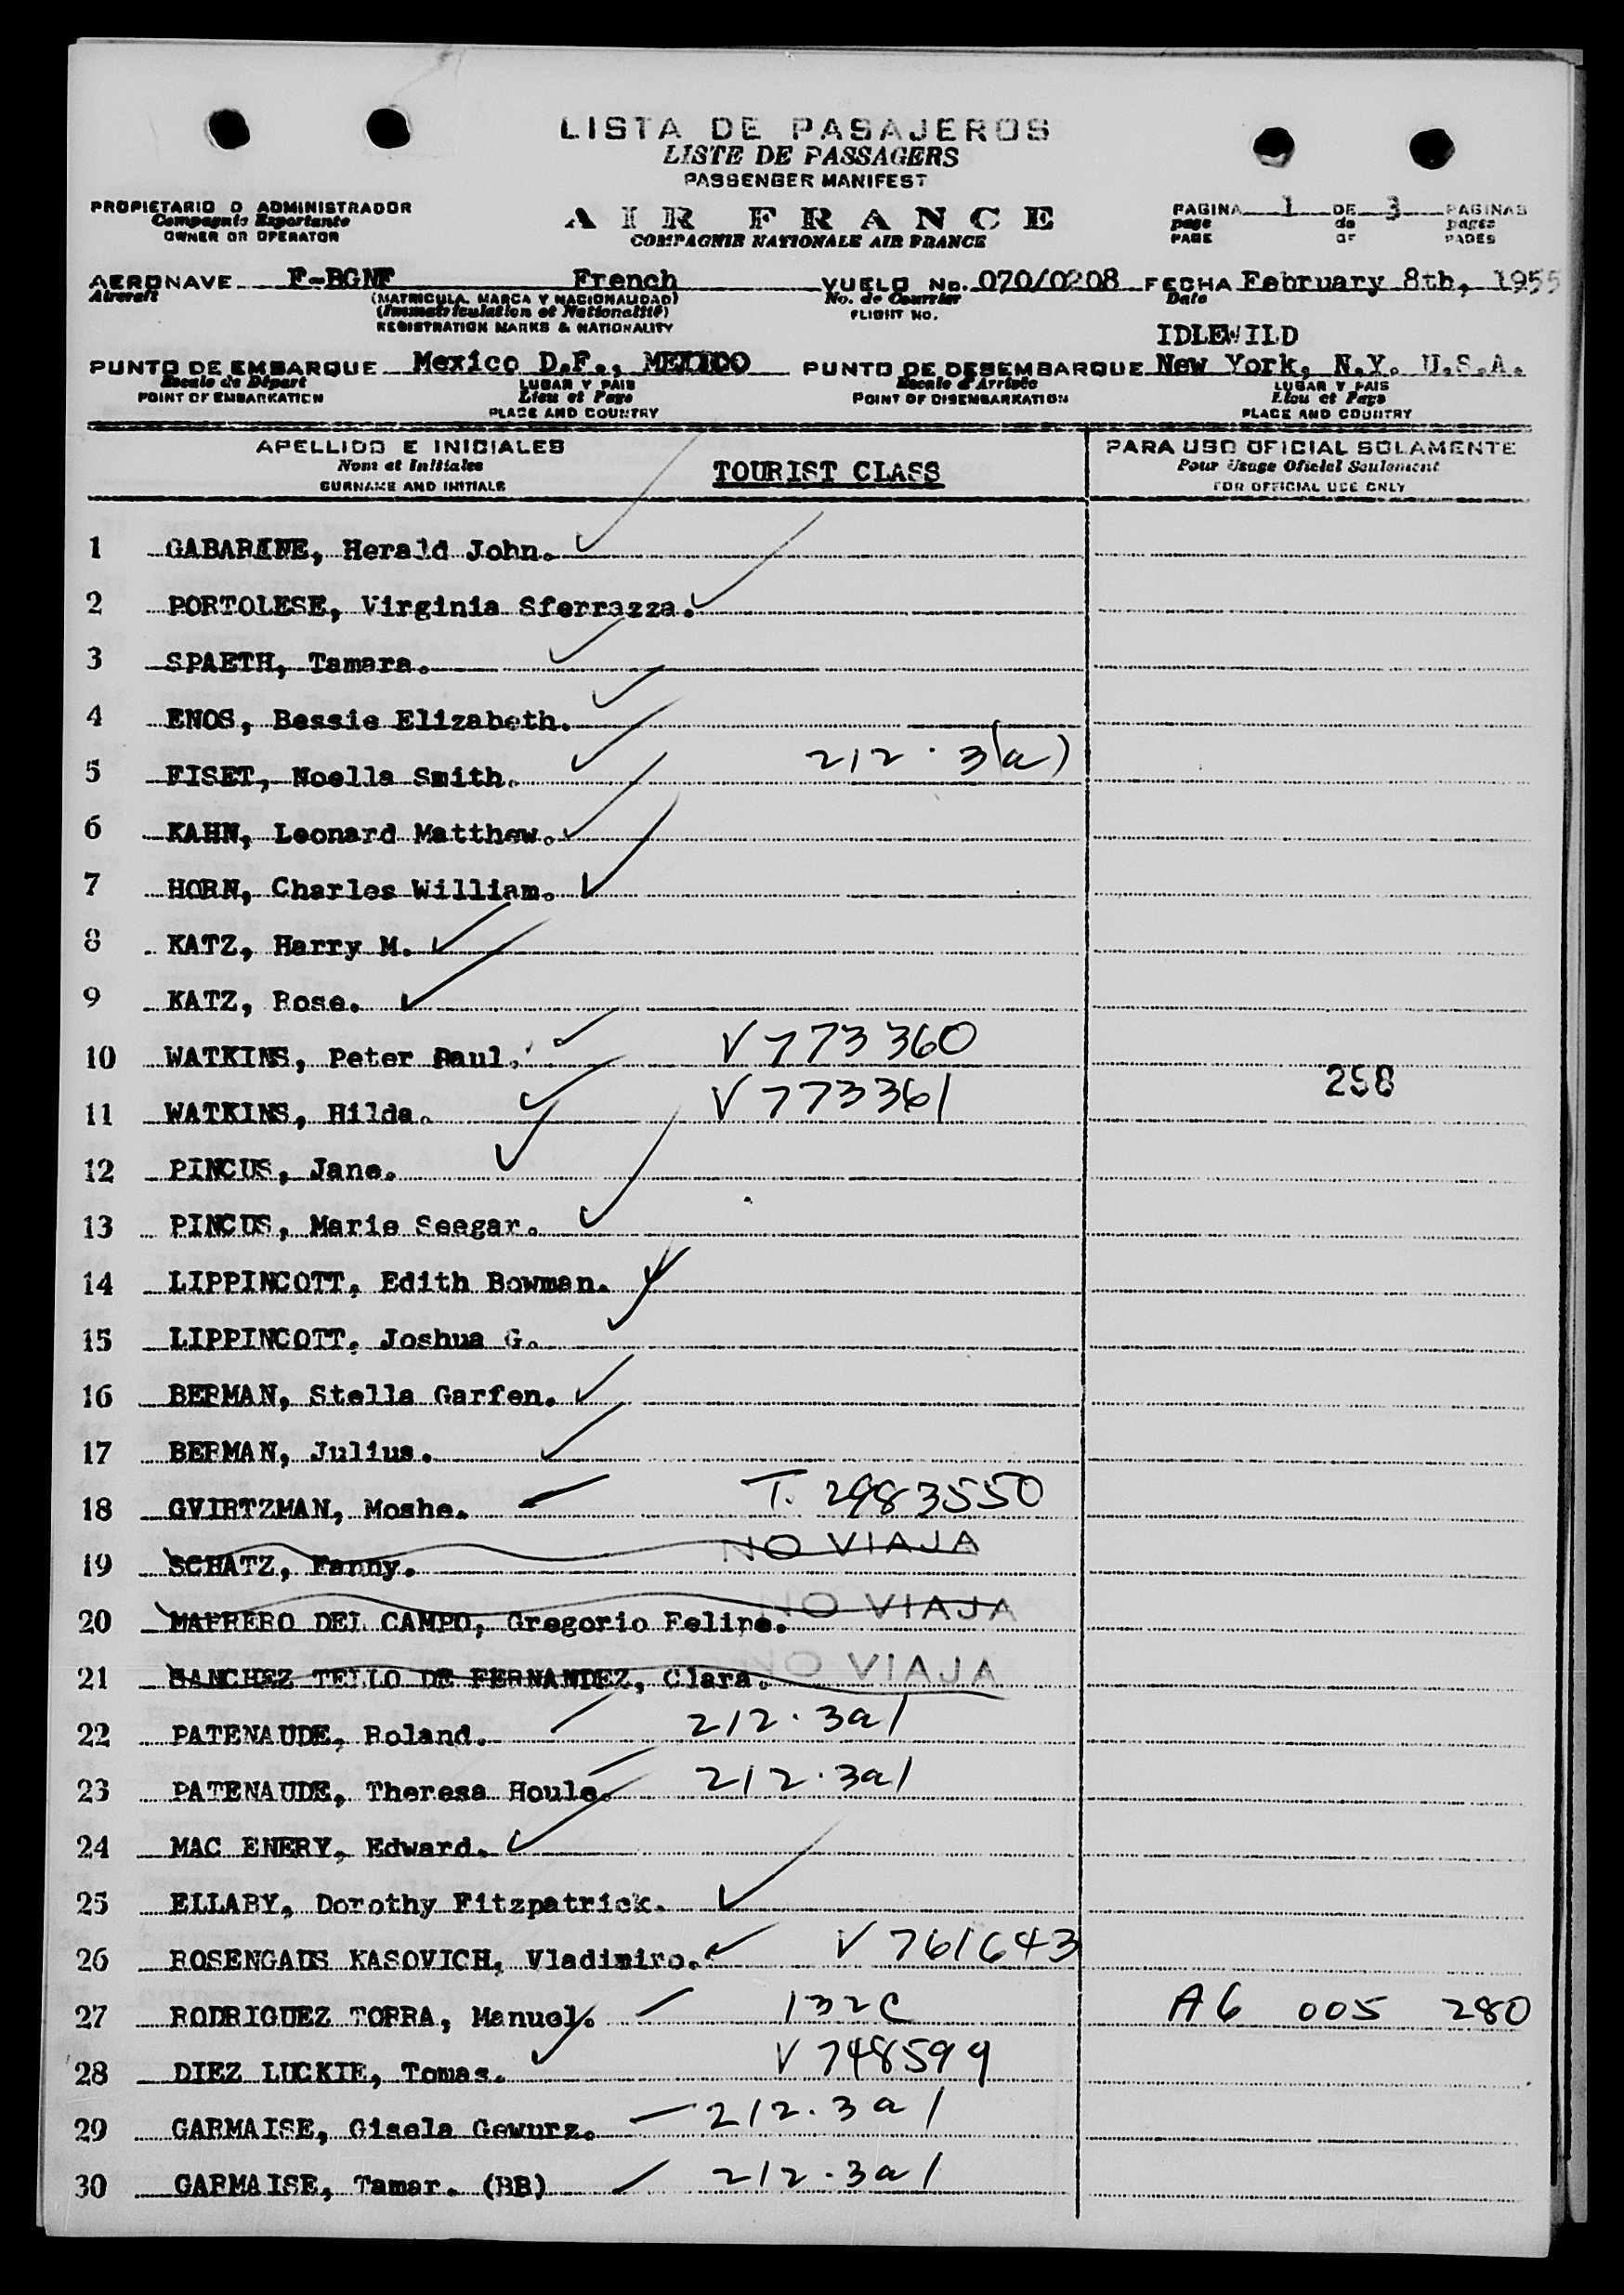 LISTA DE PASAJEROS
LISTE DE PASSAGERS
PASSENGER MANIFEST
PROPIETARIO O ADMINISTRADOR
Compagnie Exportante
OWNER OR OPERATOR
AIR FRANCE
COMPAGNIE NATIONALE AIR FRANCE
PAGINA 1 DE 3 PAGINAS
page de pages
PAGE OF PAGES
AERONAVE F-BGNF French VUELO No. 070/0208 FECHA February 8th, 1955
Aircraft (MATRICULA, MARCA Y NACIONALIDAD) No. de Courrier Date
(Immatriculation et Nationalité) FLIGHT NO.
REGISTRATION MARKS & NATIONALITY
IDLEWILD
PUNTO DE EMBARQUE Mexico D.F., MEXICO PUNTO DE DESEMBARQUE New York, N.Y. U.S.A.
Escale de Départ LUGAR Y PAIS Escale d'Arrivée LUGAR Y PAIS
POINT OF EMBARKATION Lieu et Pays POINT OF DISEMBARKATION Lieu et Pays
PLACE AND COUNTRY PLACE AND COUNTRY
APELLIDO E INICIALES PARA USO OFICIAL SOLAMENTE
Nom et Initiales TOURIST CLASS Pour Usage Oficiel Seulement
SURNAME AND INITIALS FOR OFFICIAL USE ONLY
1 GABARINE, Herald John.
2 PORTOLESE, Virginia Sferrazza.
3 SPAETH, Tamara.
4 ENOS, Bessie Elizabeth.
5 FISET, Noella Smith. 212.3(a)
6 KAHN, Leonard Matthew.
7 HORN, Charles William.
8 KATZ, Harry M.
9 KATZ, Rose.
10 WATKINS, Peter Paul. V 773360
11 WATKINS, Hilda. V 773361 258
12 PINCUS, Jane.
13 PINCUS, Marie Seegar.
14 LIPPINCOTT, Edith Bowman.
15 LIPPINCOTT, Joshua G.
16 BERMAN, Stella Garfen.
17 BERMAN, Julius.
18 GVIRTZMAN, Moshe. T. 2983550
19 SCHATZ, Fanny. NO VIAJA
20 MARRERO DEL CAMPO, Gregorio Felipe. NO VIAJA
21 SANCHEZ TELLO DE FERNANDEZ, Clara. NO VIAJA
22 PATENAUDE, Roland. 212.3a1
23 PATENAUDE, Theresa Houle. 212.3a1
24 MAC ENERY, Edward.
25 ELLABY, Dorothy Fitzpatrick.
26 ROSENGAUS KASOVICH, Vladimiro. V 761643
27 RODRIGUEZ TORRA, Manuel. 132C A6 005 280
28 DIEZ LUCKIE, Tomas. V 748599
29 GARMAISE, Gisela Gewurz. 212.3a1
30 GARMAISE, Tamar. (BB) 212.3a1